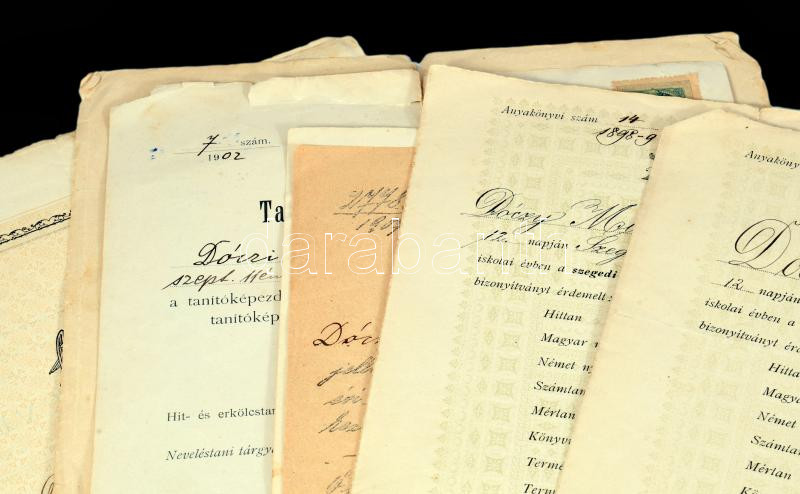 7 szám.
1902
Ta
Dóczi
szept.
a tanítóképezd
tanítókép
Hit- és erkölcstan
Neveléstani tárgya
2798
190
Dóc
Anyakönyvi szám 14
1898-9
Dóczy
12 napján Szeg
iskolai évben a szegedi
bizonyítványt érdemelt:
Hittan
Magyar n
Német ny
Számtan
Mértan
Könyvi
Termé
Anyaköny
Dó
12 napján
iskolai évben a
bizonyítványt érd
Hitta
Magya
Német
Számtan
Mértan
Könyv
Term
darabanth